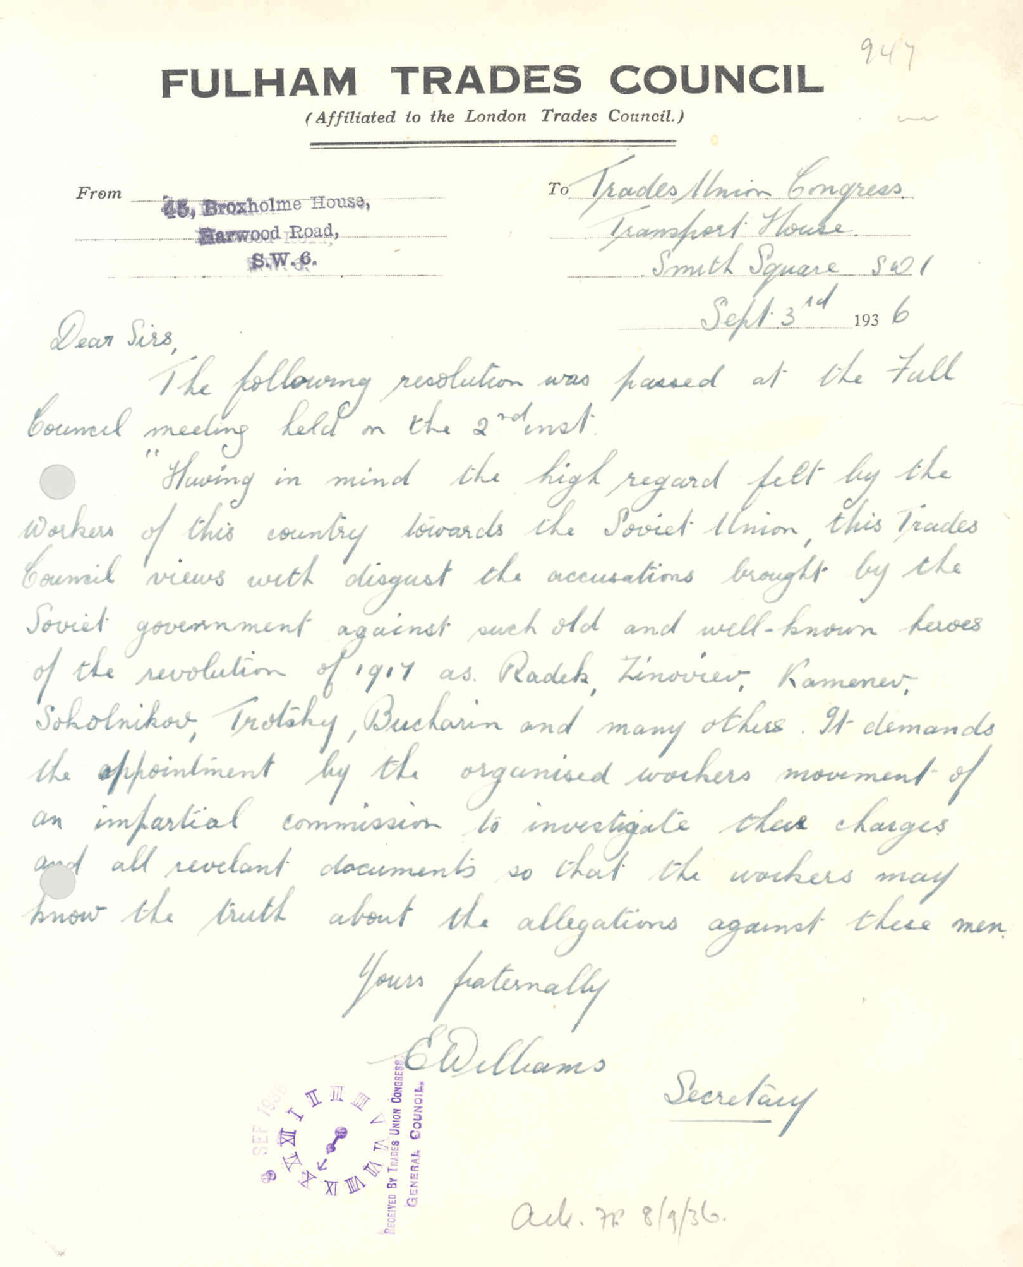 947
FULHAM TRADES COUNCIL
(Affiliated to the London Trades Council.)
From 45, Broxholme House,
Harwood Road,
S.W.6.
To Trades Union Congress
Transport House
Smith Square SW1
Sept 3rd 1936
Dear Sirs,
The following resolution was passed at the Full
Council meeting held on the 2nd inst.
"Having in mind the high regard felt by the
workers of this country towards the Soviet Union, this Trades
Council views with disgust the accusations brought by the
Soviet government against such old and well-known heroes
of the revolution of 1917 as. Radek, Zinoviev, Kamenev,
Sokolnikov, Trotsky, Bucharin and many others. It demands
the appointment by the organised workers movement of
an impartial commission to investigate these charges
and all revelant documents so that the workers may
know the truth about the allegations against these men.
Yours fraternally
E Williams
Secretary
SEP 1936
I II III IIII V VI VII VIII IX X XI XII
RECEIVED BY TRADES UNION CONGRESS
GENERAL COUNCIL.
Ack. 8/9/36.